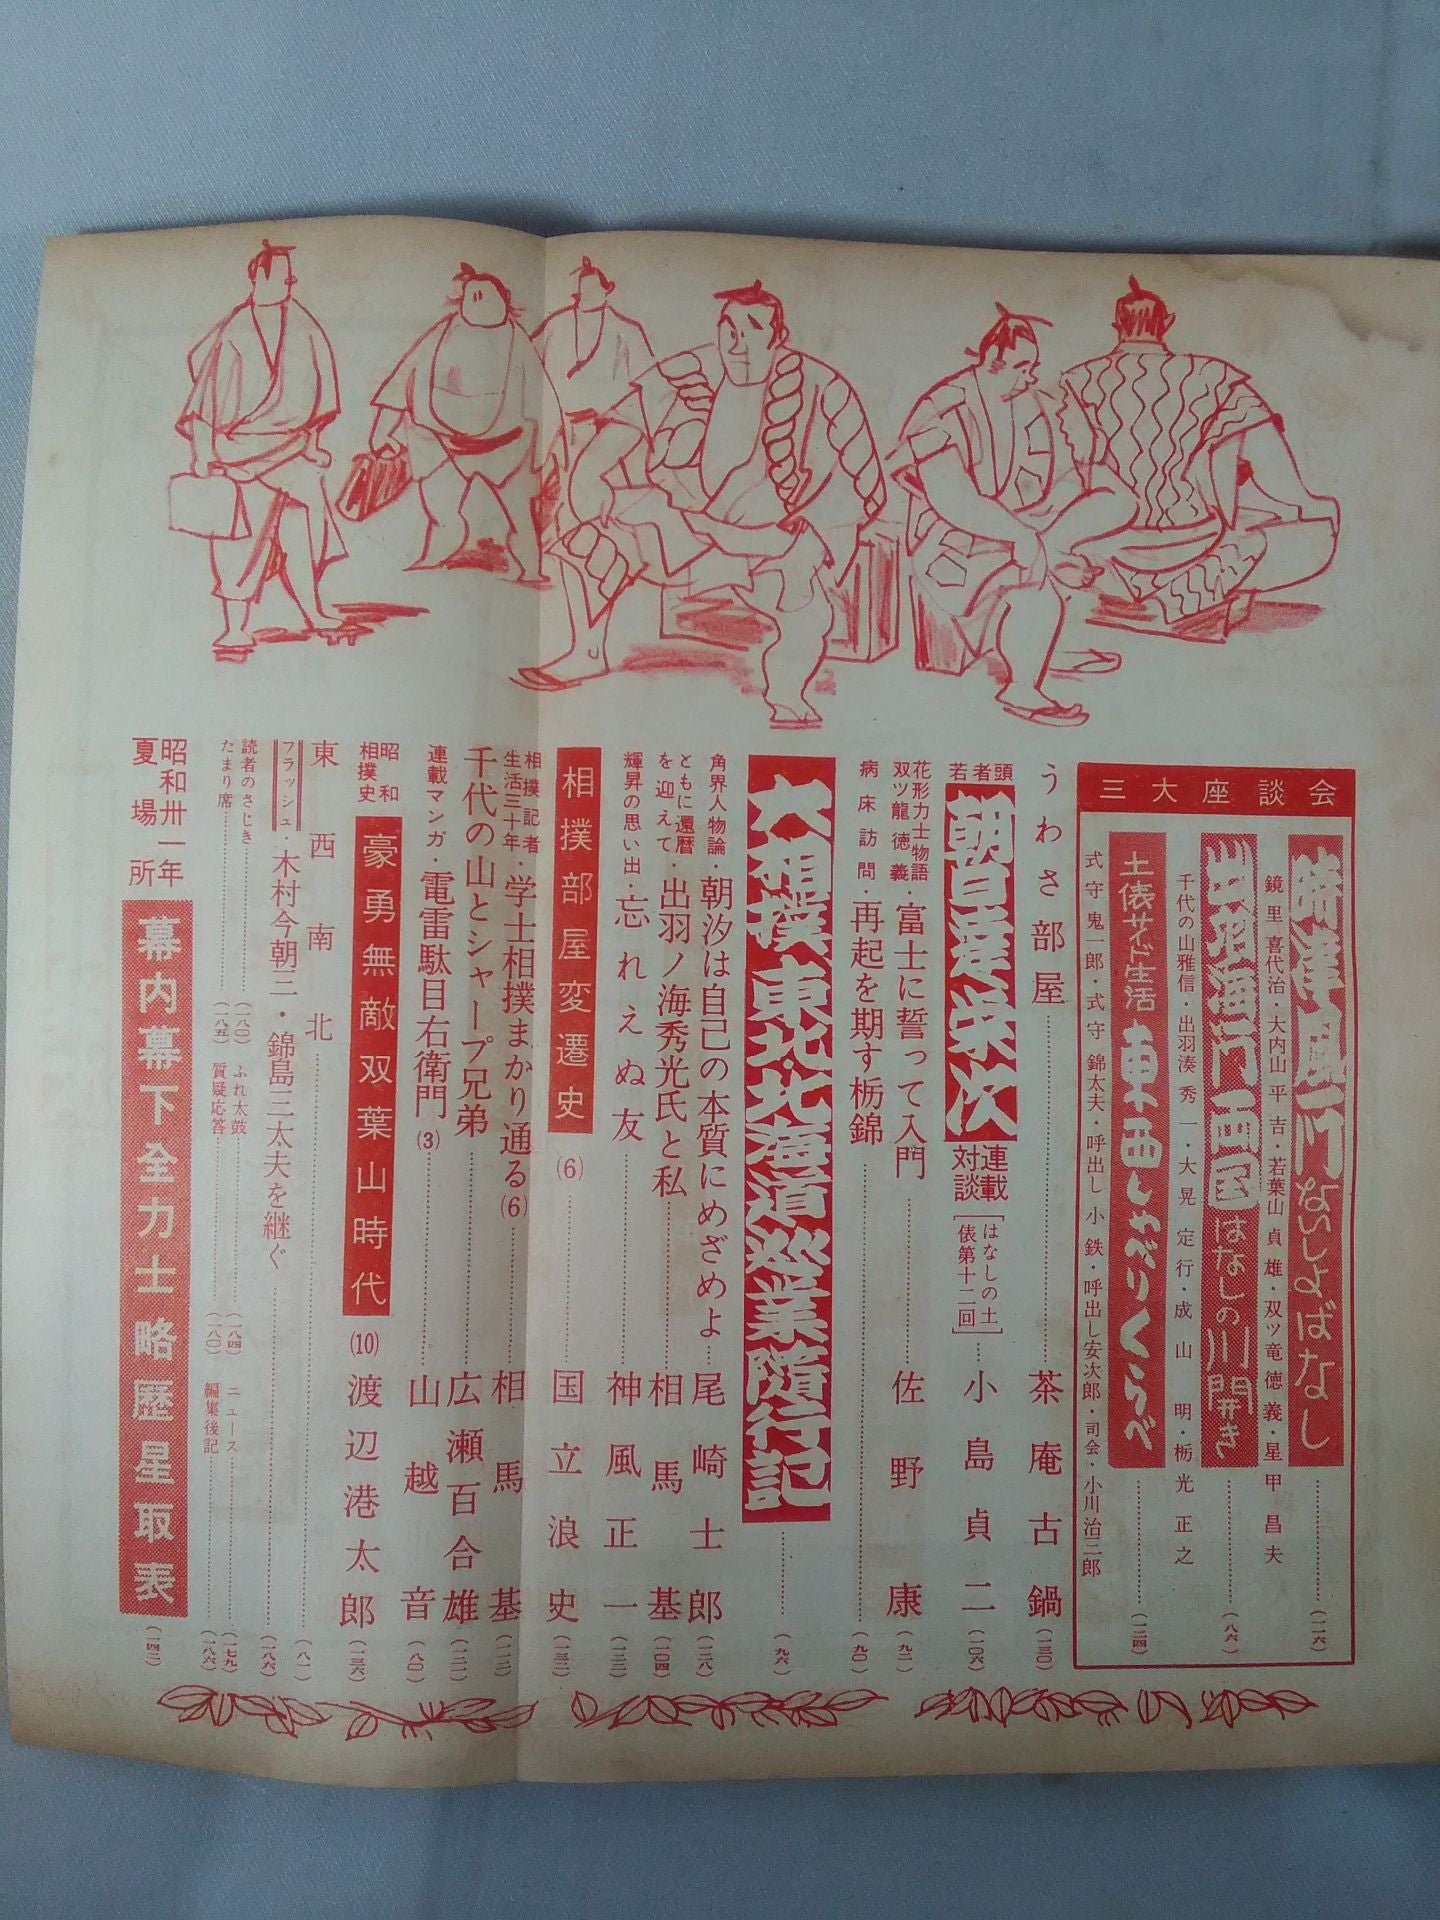 三大座談会
時津風一門ないしょばなし
(一一六)
鏡里喜代治・大内山平吉・若葉山貞雄・双ツ竜徳義・星甲昌夫
出羽海一門両国はなしの川開き
(八六)
千代の山雅信・出羽湊秀一・大晃定行・成山明・栃光正之
土俵サイド生活東西しゃべりくらべ
(一二四)
式守鬼一郎・式守錦太夫・呼出し小鉄・呼出し安次郎・司会・小川治三郎
うわさ部屋
茶庵古鍋
(一三〇)
若者頭
朝日番栄次
連載対談
[はなしの土俵第十二回]
小島貞二
(一〇六)
花形力士物語
双ツ龍徳義・富士に誓って入門
佐野康
(九二)
病床訪問・再起を期す栃錦
(九〇)
大相撲東北・北海道巡業随行記
(九六)
角界人物論・朝汐は自己の本質にめざめよ
尾崎士郎
(一二八)
ともに還暦を迎えて・出羽ノ海秀光氏と私
相馬基
(一〇四)
輝昇の思い出・忘れえぬ友
神風正一
(一二二)
相撲部屋変遷史
(6)
国立浪史
(一三二)
相撲記者生活三十年・学士相撲まかり通る(6)
相馬基
(一一二)
千代の山とシャープ兄弟
広瀬百合雄
連載マンガ・電雷駄目右衛門(3)
山越音
(八〇)
昭和相撲史
豪勇無敵双葉山時代
(10)
渡辺港太郎
(一三六)
東西南北
(八一)
フラッシュ・木村今朝三・錦島三太夫を継ぐ
(一八六)
読者のさじき
(一八〇)
ふれ太鼓
(一八四)
ニュース
(一七九)
たまり席
(一八五)
質疑応答
(一八〇)
編集後記
(一八六)
昭和卅一年夏場所
幕内幕下全力士略歴星取表
(一四二)